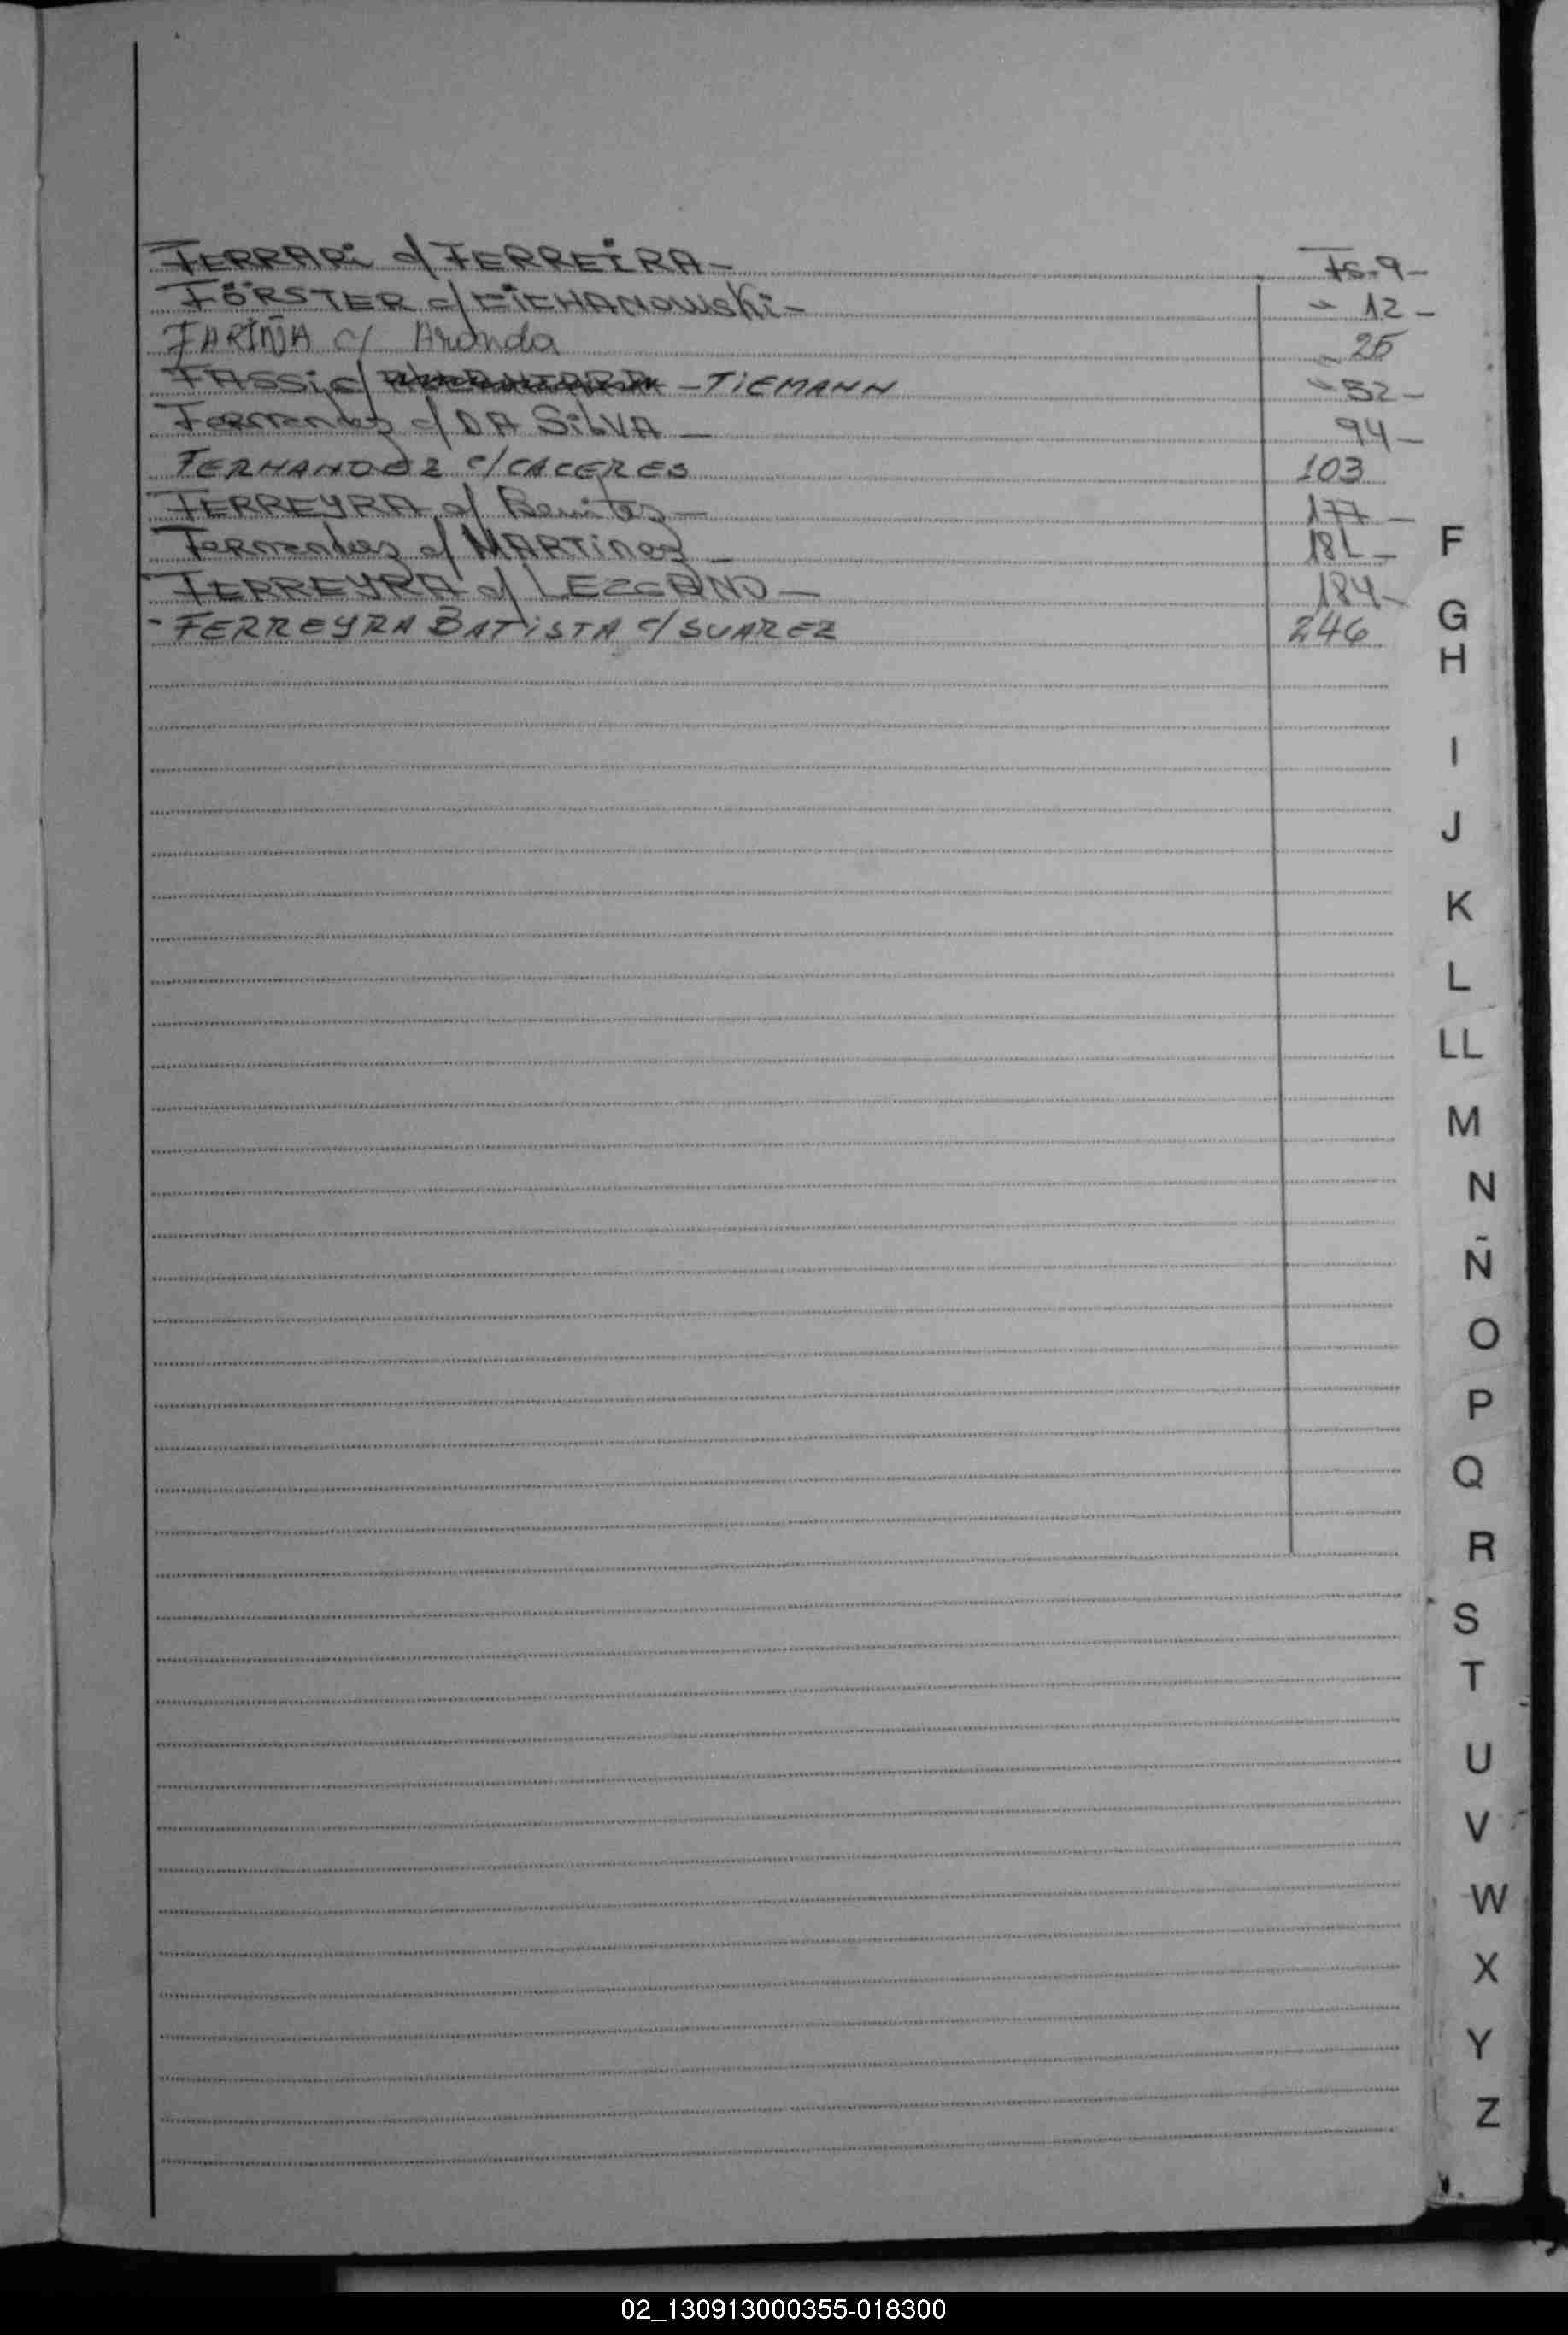 FERRARi c/ FERREIRA- Fs-9-
FÖRSTER c/ CICHANOWSKi- " 12-
FARIÑA c/ Aranda " 25
FASSi c/ - TIEMANN " 52-
Fernandez c/ DA SiLVA - 94-
FERNANDEZ c/ CACERES 103
FERREYRA c/ Benitez - 177-
Fernandez c/ MARTinez - 181-
FERREYRA c/ LEZCANO - 184-
- FERREYRA BATISTA c/ SUAREZ 246
F
G
H
I
J
K
L
LL
M
N
Ñ
O
P
Q
R
S
T
U
V
W
X
Y
Z
02_130913000355-018300